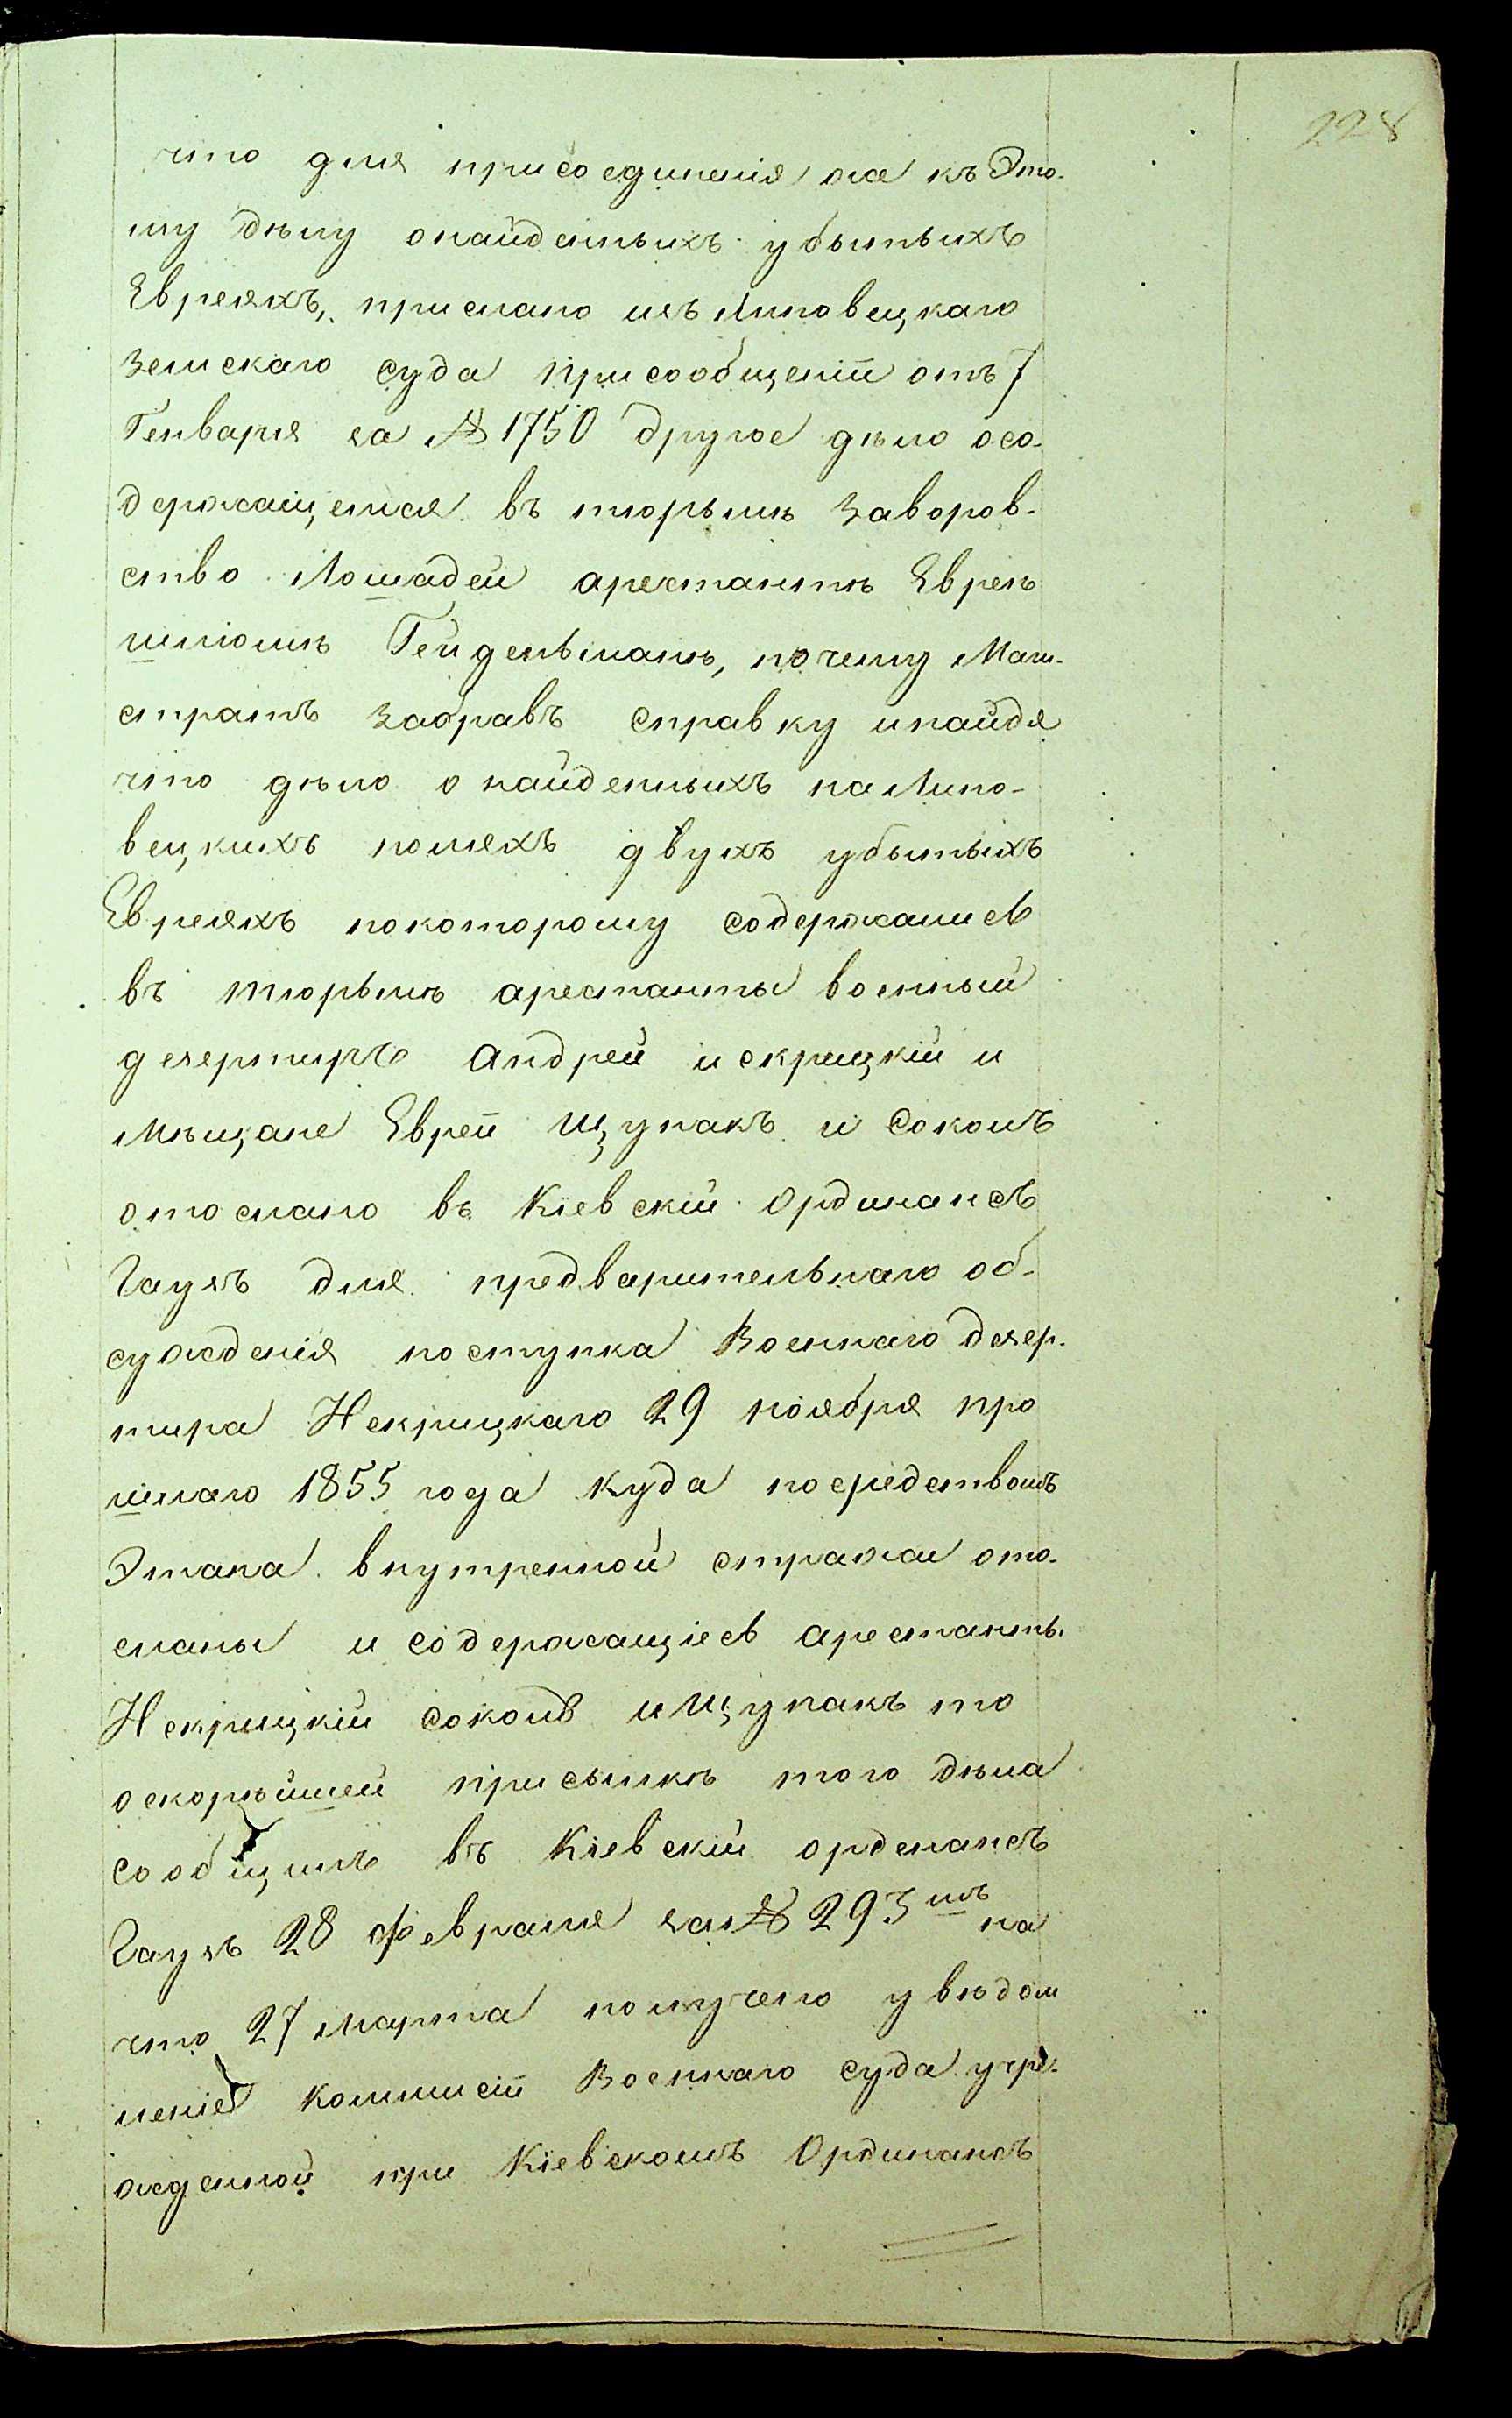 228
что для присоединенія же къ Это-
му дѣлу онайденныхъ убытыхъ
Евреяхъ, прислано изъ Липовецкаго
Земскаго суда присообщеніи отъ 7
Генваря за № 1750 другое дѣло осо-
держащемся въ тюрьмѣ Заворов-
ство Лошадей арестантѣ Евреѣ
шліомѣ Гейдельманѣ, почему Маги-
стратъ Забравъ справку инайдя
что дѣло о найденныхъ наЛипо-
вецкихъ поляхъ двухъ убытыхъ
Евреяхъ покоторому содержались
въ тюрьмѣ арестанты военный
дезертиръ Андрей искрицкій и
Мѣщане Евреи Щупакъ и Соколъ
отослано въ Кіевскій Ординансъ
Гаузъ для предварительнаго об-
сужденія поступка Военнаго дезер-
тира Искрицкаго 29 ноября про
шлаго 1855 года куда посредствомъ
Этапа внутренной стражи ото-
сланы и содержащіесь арестанты
Искрицкій соколъ иЩупакъ то
оскорѣйшей присылкѣ того дѣла
сообщилъ въ Кіевскій орденансъ
Гаузъ 28 февраля за№ 293 мъ на
что 27 Марта получено увѣдом
леніе Коммисіи Военнаго суда учре-
жденной при Кіевскомъ Ординансъ